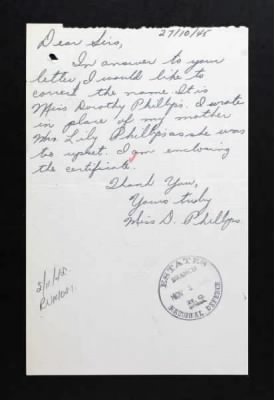 27/10/45
Dear Sirs,
In answer to your
letter, I would like to
correct the name. It is
Miss Dorothy Phillips. I wrote
in place of my mother
Mrs. Lily Phillips as she was
to upset. I am enclosing
the certificate.
Thank You,
Yours truly
Miss D. Phillips
ESTATES
BRANCH
NOV
NATIONAL DEFENCE